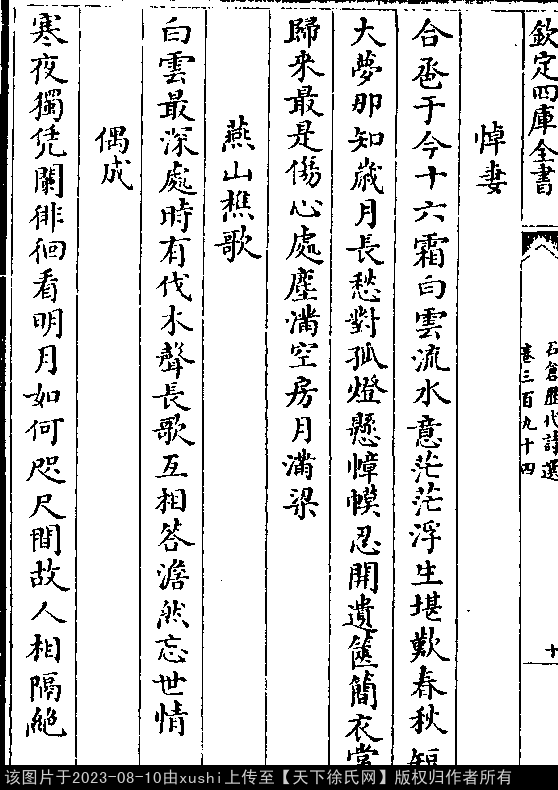 欽定四庫全書
石倉歷代詩選
卷三百九十四
十
悼妻
合巹于今十六霜白雲流水意茫茫浮生堪歎春秋短
大夢那知歲月長愁對孤燈懸幛幙忍開遺篋簡衣裳
歸來最是傷心處塵滿空房月滿梁
燕山樵歌
白雲最深處時有伐木聲長歌互相答澹然忘世情
偶成
寒夜獨凭闌徘徊看明月如何咫尺間故人相隔絶
该图片于2023-08-10由xushi上传至【天下徐氏网】版权归作者所有